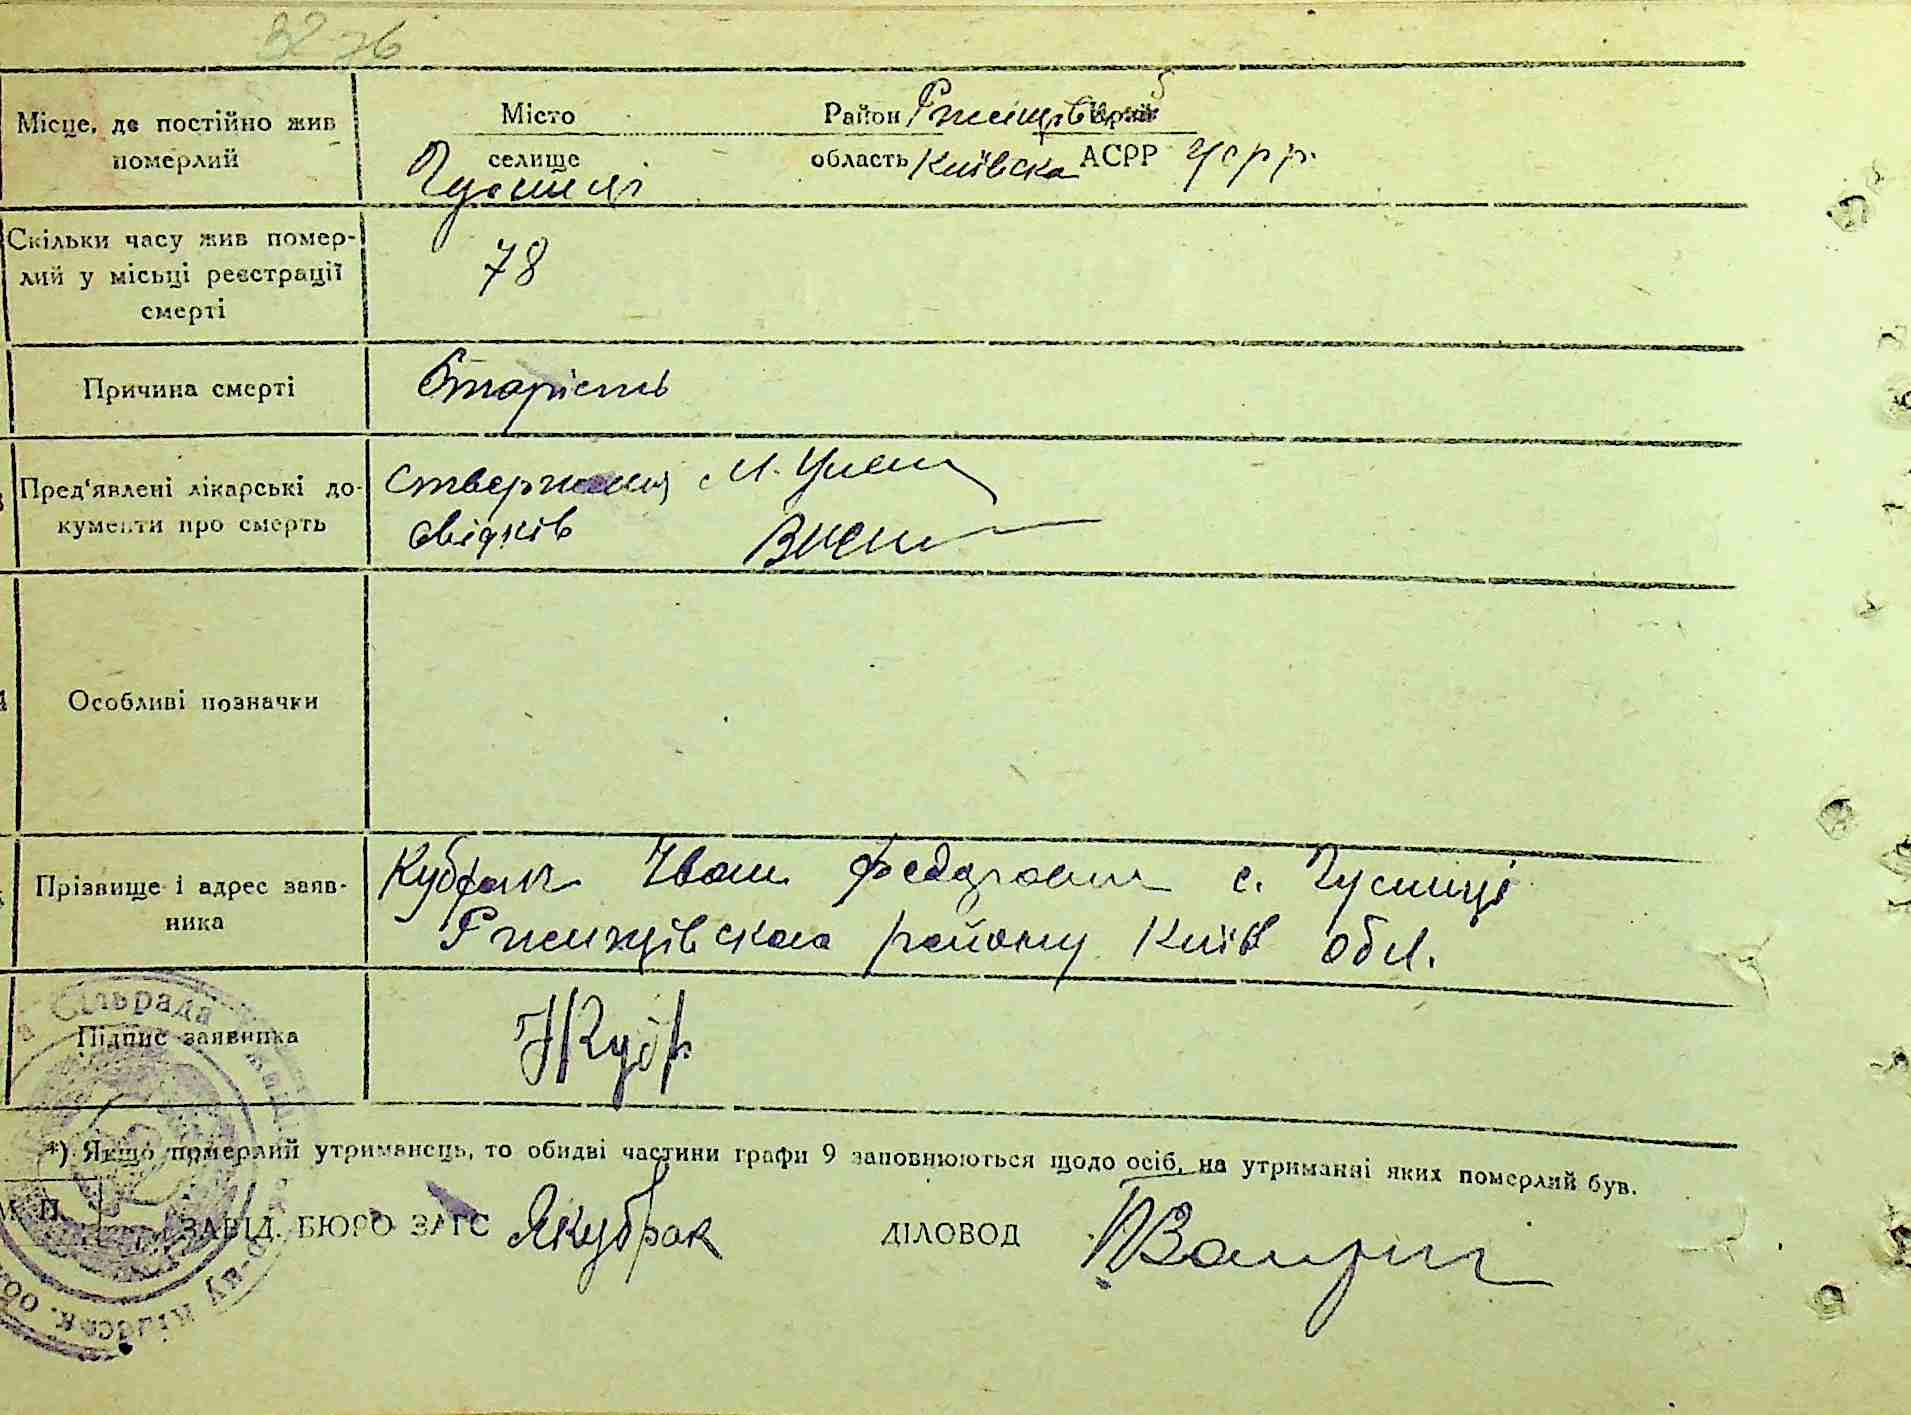 32 26
Місце, де постійно жив
померлий
Місто Район Ржищівс Край
селище область Київска АСРР УСРР
Пустиці
Скільки часу жив помер-
лий у місьці реєстрації
смерті
78
Причина смерті
Старість
Пред'явлені лікарські до-
кументи про смерть
Ствержения
свідків
Особливі позначки
Прізвище і адрес заяв-
ника
Кубрак Іван Федорович с.
Ржищівского району Київ обл.
Підпис заявника
Кубр
*) Якщо померлий утриманець, то обидві частини графи 9 заповнюються щодо осіб, на утриманні яких померлий був.
М. П.
ЗАВІД. БЮРО ЗАГС Якубрак ДІЛОВОД
Сільрада